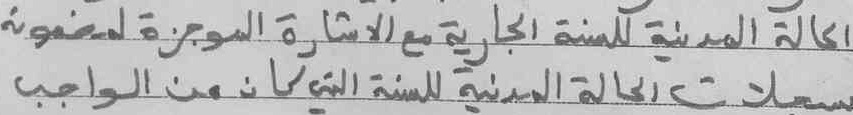 الحالة المدنية للسنة الجارية مع الاشارة الموجزة لمضمونه
سجلات الحالة المدنية للسنة التي كان من الواجب